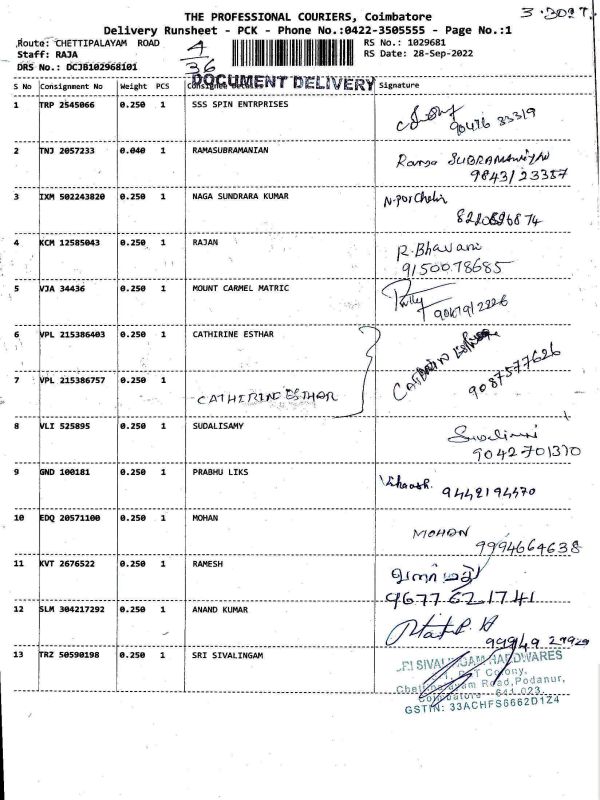 THE PROFESSIONAL COURIERS, Coimbatore
Delivery Runsheet - PCK - Phone No.:0422-3505555 - Page No.:1
Route: CHETTIPALAYAM ROAD
RS No.: 1029681
Staff: RAJA
4/36
RS Date: 28-Sep-2022
DRS No.: DCJB102968101
DOCUMENT DELIVERY
S No Consignment No Weight PCS Signature
1 TRP 2545066 0.250 1 SSS SPIN ENTRPRISES
90476 33319
2 TNJ 2057233 0.040 1 RAMASUBRAMANIAN
Rama SUBRAMANIYAN
9843123387
3 IXM 502243820 0.250 1 NAGA SUNDRARA KUMAR
N.Porchelvi
4 KCM 12585043 0.250 1 RAJAN
R.Bhavani
9150078685
5 VJA 34436 0.250 1 MOUNT CARMEL MATRIC
6 VPL 215386403 0.250 1 CATHIRINE ESTHAR
7 VPL 215386757 0.250 1
CATHERINE ESTHAR
9087577626
8 VLI 525895 0.250 1 SUDALISAMY
9042701310
9 GND 100181 0.250 1 PRABHU LIKS
9442194470
10 EDQ 20571100 0.250 1 MOHAN
MOHAN
9994664638
11 KVT 2676522 0.250 1 RAMESH
வளர்மதி
9677621741
12 SLM 304217292 0.250 1 ANAND KUMAR
99949 27929
13 TRZ 50590198 0.250 1 SRI SIVALINGAM
SRI SIVALINGAM HARDWARES
Colony,
Chettipalayam Road, Podanur,
Coimbatore - 641 023
GSTIN: 33ACHFS6662D1Z4